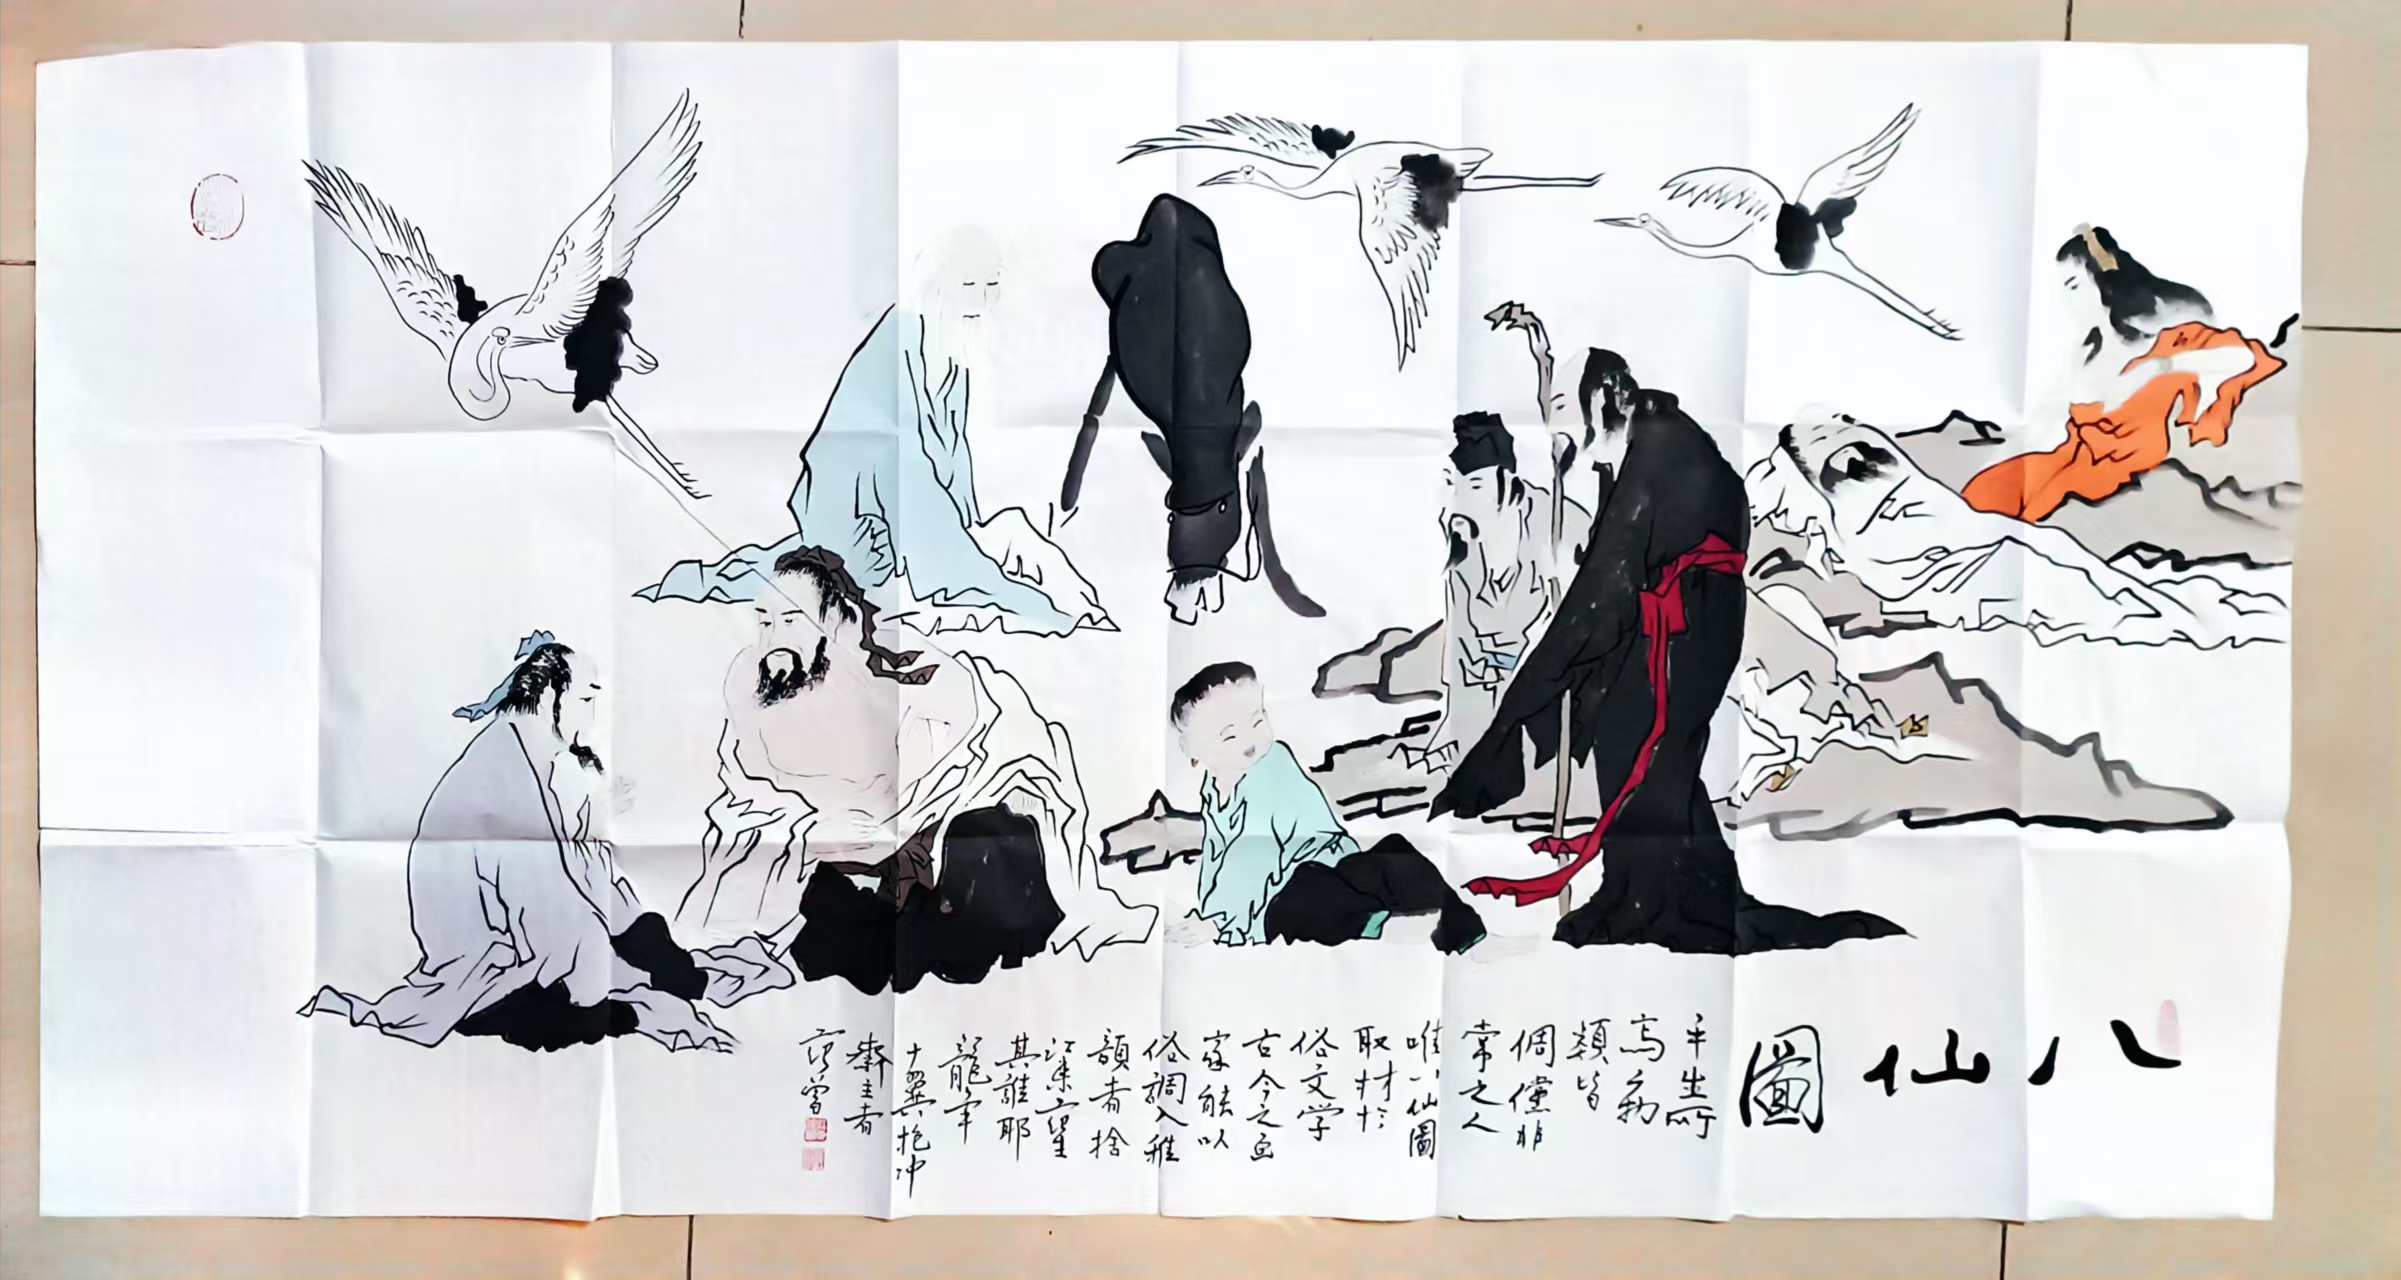 八仙圖
平生所
寫人物
類皆
倜儻非
常之人
唯八仙圖
取材於
俗文学
古今之画
家能以
俗調入雅
韻者捨
江東范
其誰耶
龍年
十翼抱冲
齋主者
范曾